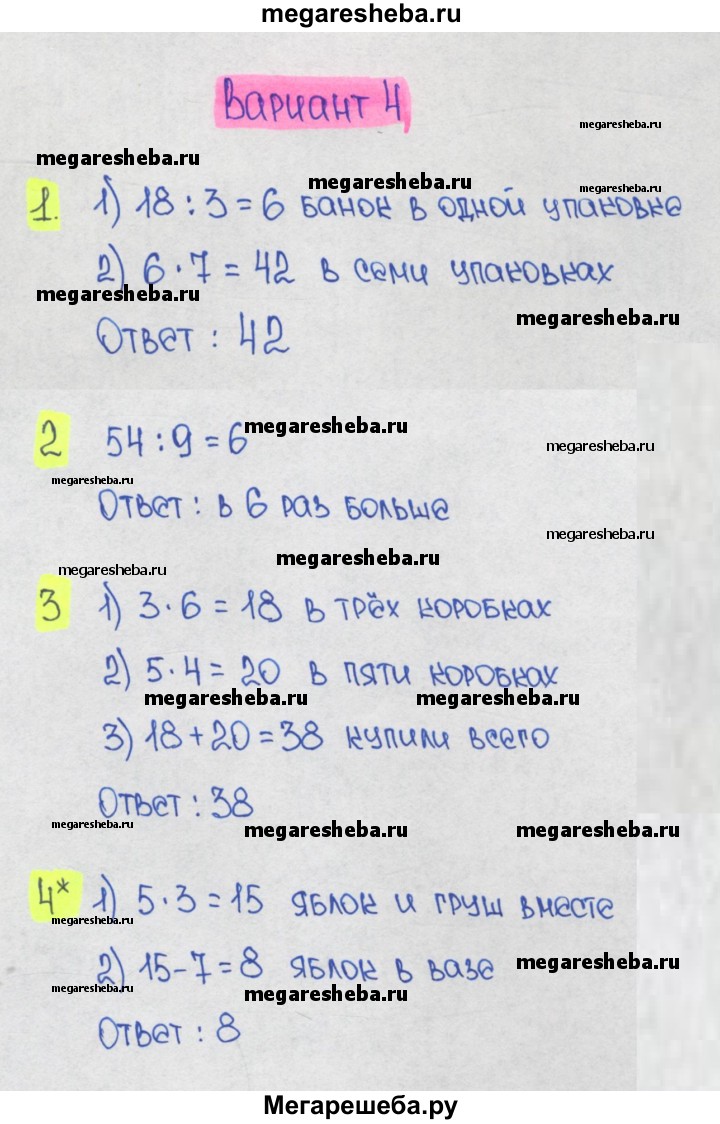 megaresheba.ru
Вариант 4
megaresheba.ru
megaresheba.ru
megaresheba.ru
megaresheba.ru
1. 1) 18 : 3 = 6 банок в одной упаковке
2) 6 · 7 = 42 в семи упаковках
megaresheba.ru
megaresheba.ru
Ответ : 42
2 54 : 9 = 6
megaresheba.ru
megaresheba.ru
megaresheba.ru
Ответ : в 6 раз больше
megaresheba.ru
megaresheba.ru
megaresheba.ru
3 1) 3 · 6 = 18 в трёх коробках
2) 5 · 4 = 20 в пяти коробках
megaresheba.ru
megaresheba.ru
3) 18 + 20 = 38 купили всего
Ответ : 38
megaresheba.ru
megaresheba.ru
megaresheba.ru
4* 1) 5 · 3 = 15 яблок и груш вместе
megaresheba.ru
2) 15 - 7 = 8 яблок в вазе
megaresheba.ru
megaresheba.ru
megaresheba.ru
Ответ : 8
Мегарешеба.ру